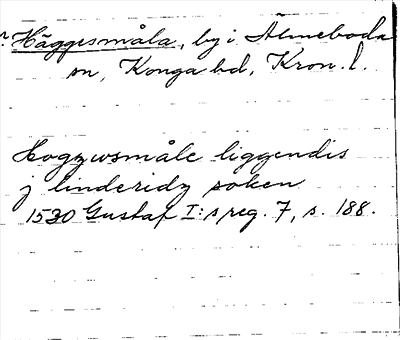 Häggesmåla, by i Älmeboda
sn, Konga hd, Kron. l.
Hogzwsmåle liggendis
j linderidz soken
1530 Gustaf I:s reg. 7, s. 188.